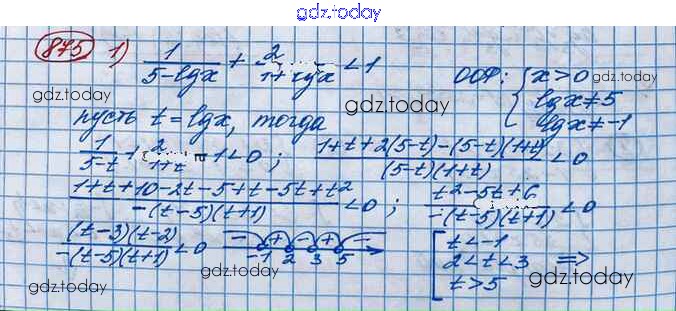 gdz.today
875 1) 1/(5-lgx) + 2/(1+lgx) < 1
ООФ: { x>0 gdz.today
gdz.today lgx≠5
gdz.today lgx≠-1
пусть t=lgx, тогда
1/(5-t) + 2/(1+t) - 1 < 0 ; (1+t+2(5-t)-(5-t)(1+t))/((5-t)(1+t)) < 0
(1+t+10-2t-5+t-5t+t²)/(-(t-5)(t+1)) < 0 ; (t²-5t+6)/(-(t-5)(t+1)) < 0
(t-3)(t-2)/(-(t-5)(t+1)) < 0 - + - + - -1 2 3 5 [ t<-1
2<t<3 =>
t>5
gdz.today gdz.today gdz.today